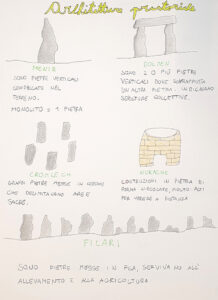 Architettura preistorica
MENHIR
SONO PIETRE VERTICALI
CONFICCATE NEL
TERRENO.
MONOLITO = 1 PIETRA
DOLMEN
SONO 2 O PIÙ PIETRE
VERTICALI CON SOVRAPPOSTA
UN'ALTRA PIETRA. INDICAVANO
SEPOLTURE COLLETTIVE.
CROMLECH
GRANDI PIETRE MESSE IN CERCHIO
CHE DELIMITAVANO AREE
SACRE.
NURAGHE
COSTRUZIONI IN PIETRA DI
FORMA CIRCOLARE, MOLTO ALTI
PER VEDERE A DISTANZA
FILARI
SONO PIETRE MESSE IN FILA, SERVIVANO ALL'
ALLEVAMENTO E ALLA AGRICOLTURA